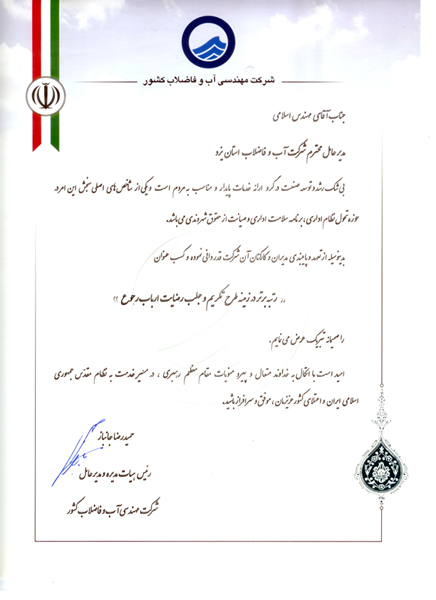 شرکت مهندسی آب و فاضلاب کشور
جناب آقای مهندس اسلامی
مدیرعامل محترم شرکت آب و فاضلاب استان یزد
بی شک رشد و توسعه صنعت در گرو ارائه خدمات پایدار و مناسب به مردم است و یکی از شاخص های اصلی سنجش این امر در
حوزه تحول نظام اداری، برنامه سلامت اداری و صیانت از حقوق شهروندی می باشد.
بدینوسیله از تعهد و پایبندی مدیران و کارکنان آن شرکت قدردانی نموده و کسب عنوان
«رتبه برتر در زمینه طرح تکریم و جلب رضایت ارباب رجوع»
را صمیمانه تبریک عرض می نمایم.
امید است با اتکال به خداوند متعال و پیرو منویات مقام معظم رهبری، در مسیر خدمت به نظام مقدس جمهوری
اسلامی ایران و اعتلای کشور عزیزمان، موفق و سرافراز باشید.
حمیدرضا جانباز
رئیس هیات مدیره و مدیرعامل
شرکت مهندسی آب و فاضلاب کشور